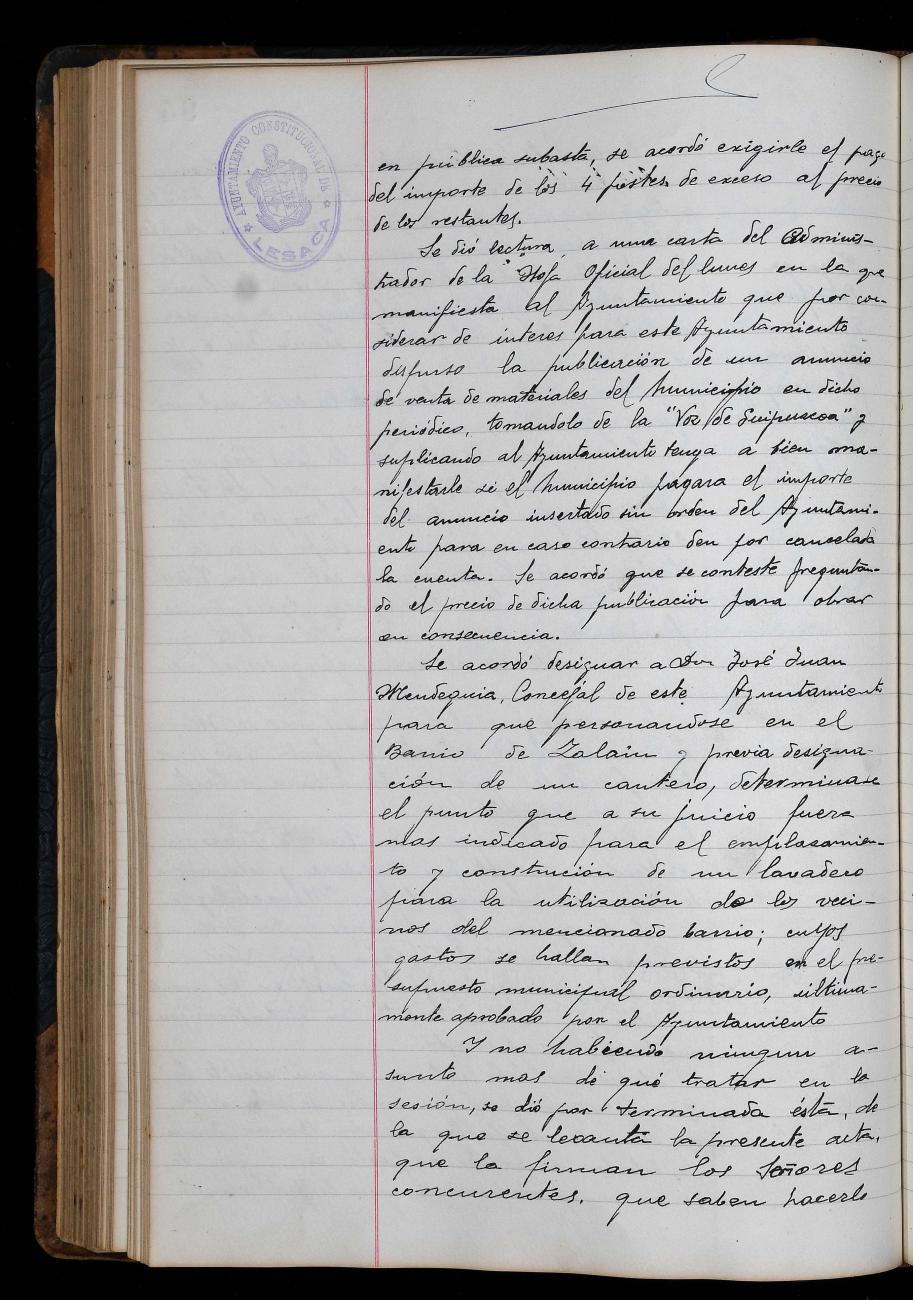 AYUNTAMIENTO CONSTITUCIONAL DE
LESACA
en pública subasta, se acordó exigirle el pago
del importe de los 4 postes de exceso al precio
de los restantes.
Se dió lectura, a una carta del Adminis-
trador de la "Hoja Oficial del lunes en la que
manifiesta al Ayuntamiento que por con-
siderar de interes para este Ayuntamiento
dispuso la publicación de un anuncio
de venta de materiales del Municipio en dicho
periódico, tomandolo de la "Voz de Guipuscoa" y
suplicando al Ayuntamiento tenga a bien ma-
nifestarle si el Municipio pagara el importe
del anuncio insertado sin orden del Ayuntami-
ento para en caso contrario den por cancelada
la cuenta. Se acordó que se conteste preguntan-
do el precio de dicha publicación para obrar
en consecuencia.
Se acordó designar a Don José Juan
Mendeguia, Concejal de este Ayuntamiento
para que personandose en el
Barrio de Zalain y previa designa-
ción de un cantero, determinase
el punto que a su juicio fuera
mas indicado para el emplasamien-
to y construción de un lavadero
para la utilización de los veci-
nos del mencionado barrio; cuyos
gastos se hallan previstos en el pre-
supuesto municipal ordinario, ultima-
mente aprobado por el Ayuntamiento
Y no habiendo ningun a-
sunto mas de qué tratar en la
sesión, se dió por terminada ésta, de
la que se levanta la presente acta,
que la firman los Señores
concurentes, que saben hacerlo